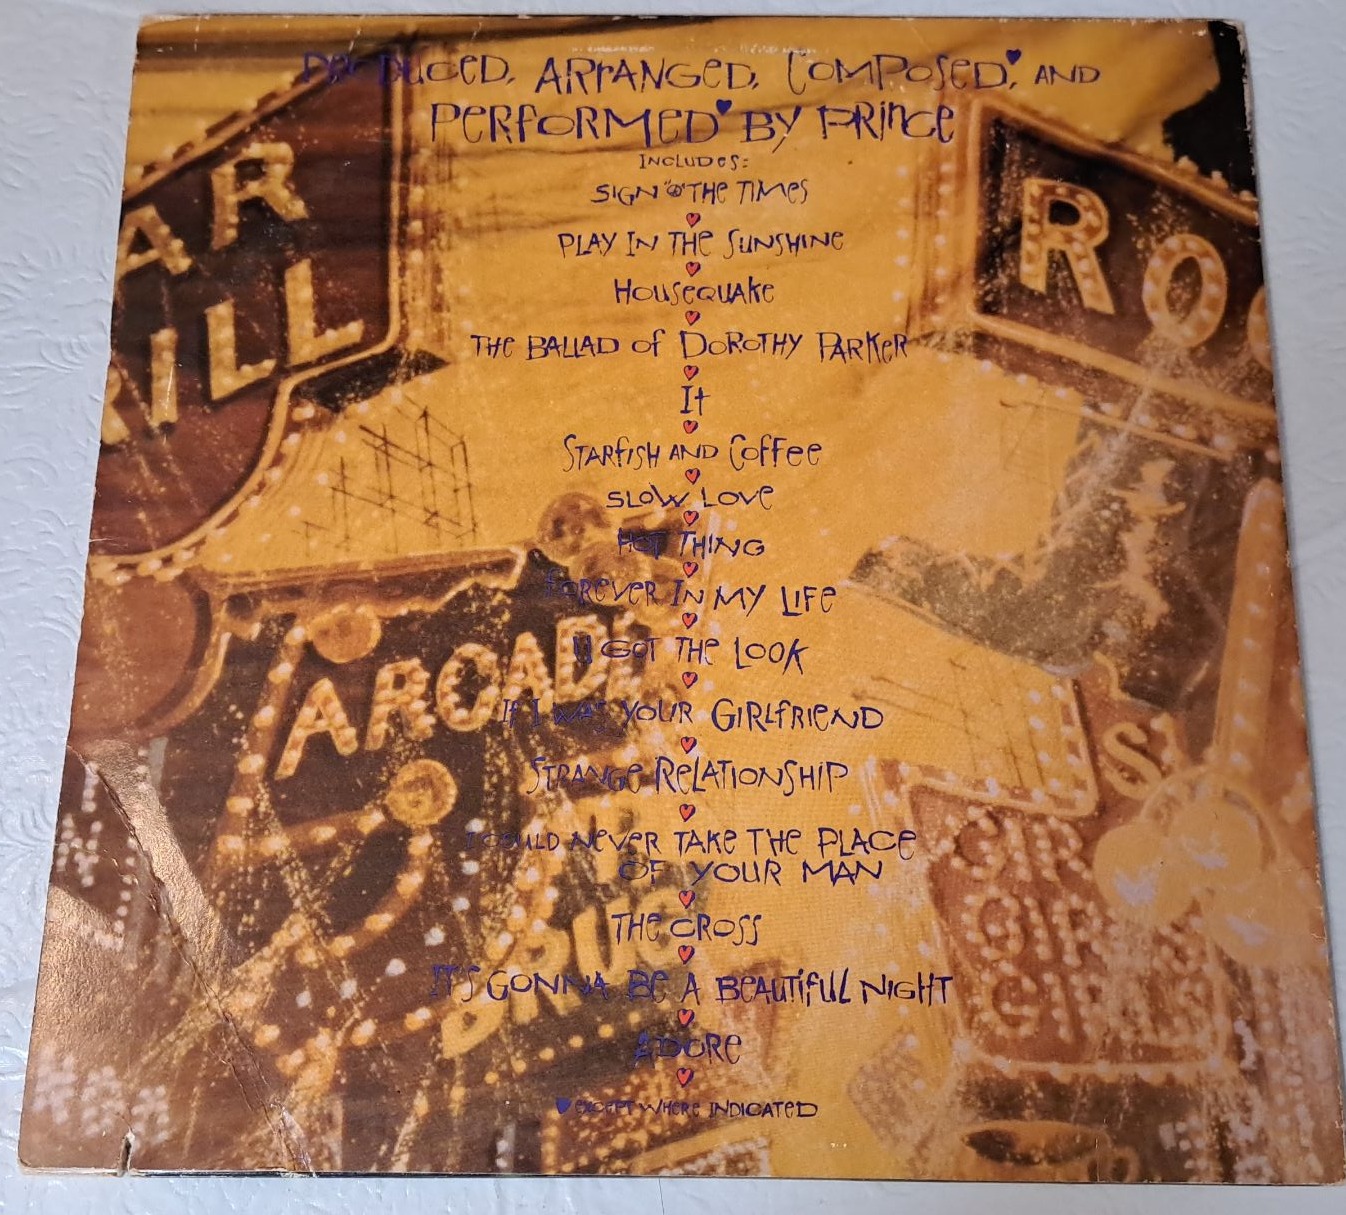 PRODUCED, ARRANGED, COMPOSED, AND
PERFORMED BY PRINCE
INCLUDES:
SIGN "☮" THE TIMES
PLAY IN THE SUNSHINE
HOUSEQUAKE
THE BALLAD OF DOROTHY PARKER
It
STARFISH AND COFFEE
SLOW LOVE
HOT THING
FOREVER IN MY LIFE
U GOT THE LOOK
IF I WAS YOUR GIRLFRIEND
STRANGE RELATIONSHIP
I COULD NEVER TAKE THE PLACE
OF YOUR MAN
THE CROSS
IT'S GONNA BE A BEAUTIFUL NIGHT
ADORE
EXCEPT WHERE INDICATED
BAR
GRILL
ARCADE
DRUG
GIRLS
GIRLS
GIRLS